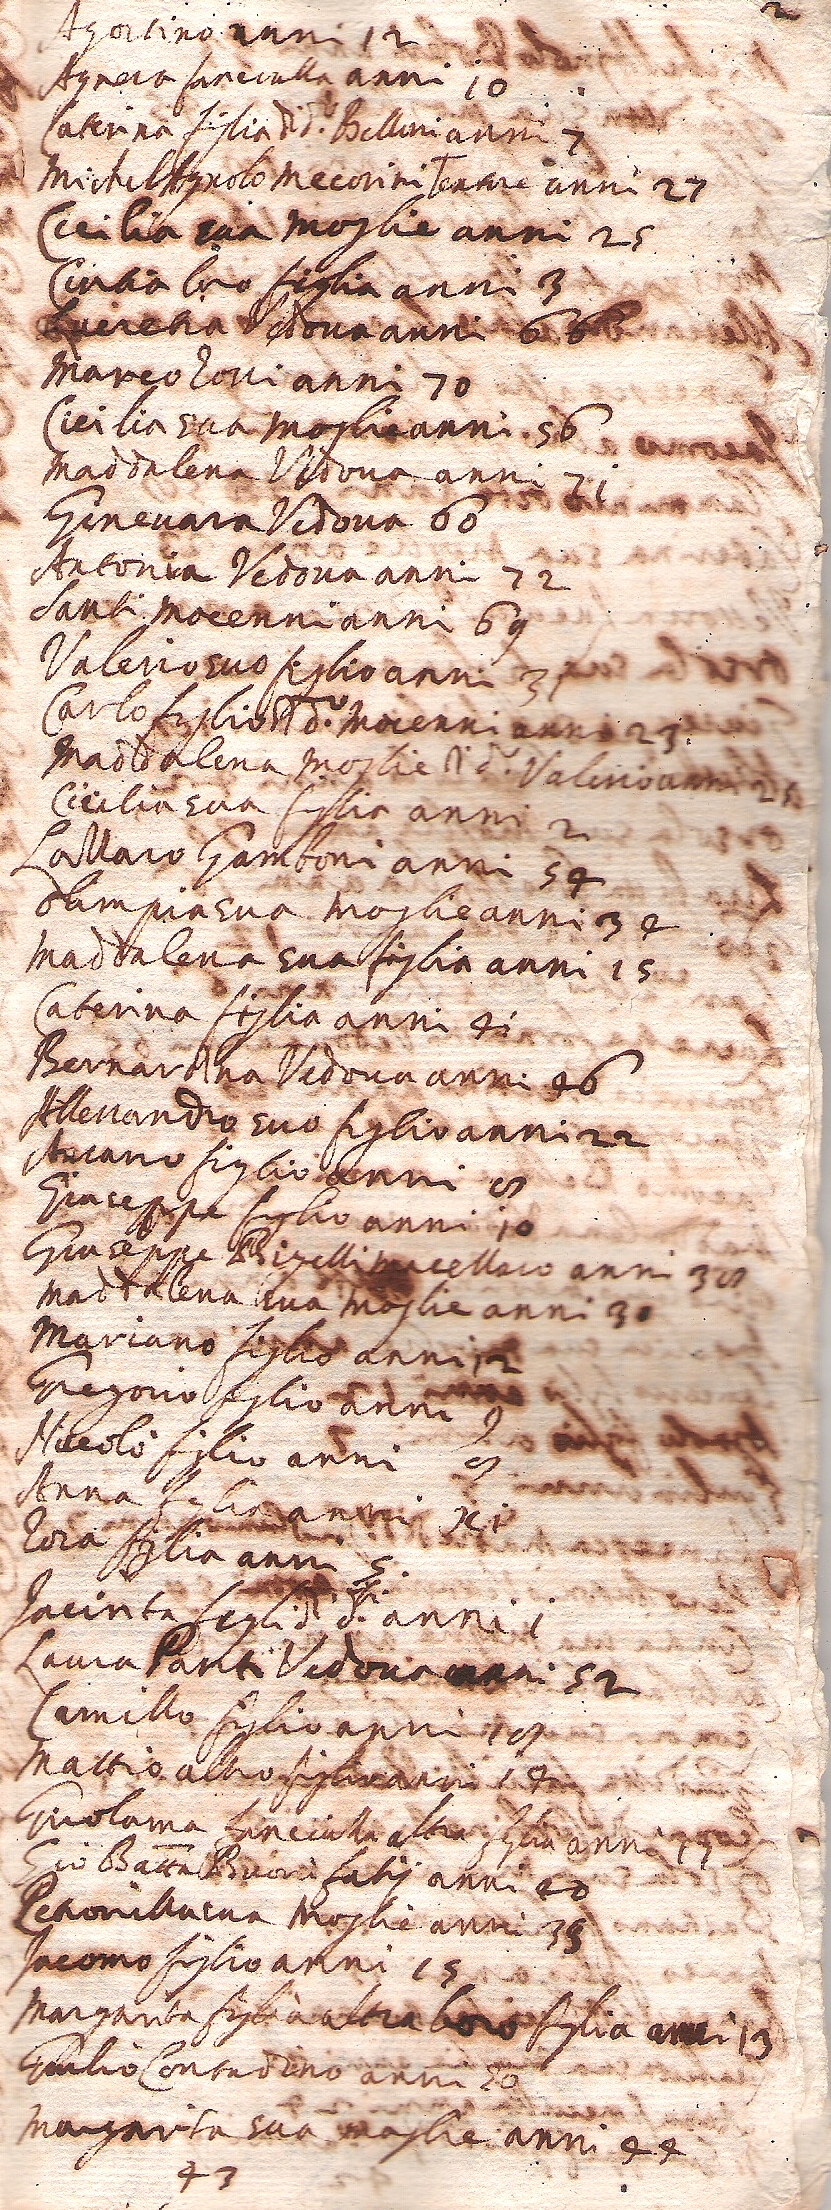 2
Agostino anni 12
Agnesa fanciulla anni 10
Caterina figlia di d.o Bellini anni 7
Michelagnolo Mecorini anni 27
Cicilia sua moglie anni 25
Cintia loro figlia anni 3
Lucretia Vedova anni 66
Marco anni 70
Cicilia sua moglie anni 56
Maddalena Vedova anni 71
Genevara Vedova 60
Antonia Vedova anni 72
Santi Mocenni anni 69
Valerio suo figlio anni 31
Carlo figlio di d.o Mocenni anni 23
Maddalena moglie di d.o Valerio anni 25
Cicilia sua figlia anni 2
Lazzaro Gamboni anni 54
Olimpia sua moglie anni 34
Maddalena sua figlia anni 15
Caterina figlia anni 41
Bernardina Vedova anni 46
Allessandro suo figlio anni 22
Ascanio figlio anni 8
Giuseppe figlio anni 10
Giuseppe macellaro anni 38
Maddalena sua moglie anni 30
Mariano figlio anni 12
Gregorio figlio anni 9
Niccolò figlio anni 8
Anna figlia anni XI
figlia anni 5
Jacinta figli di d.i anni 1
Laura Panti Vedova anni 52
Camillo figlio anni 18
Mattio altro figlio anni 14
Girolama fanciulla altra figlia anni 17
Gio Batta anni 40
Petronilla sua moglie anni 38
Jacomo figlio anni 15
Margarita figlia altra loro figlia anni 13
Giulio Contadino anni 50
Margarita sua moglie anni 44
43